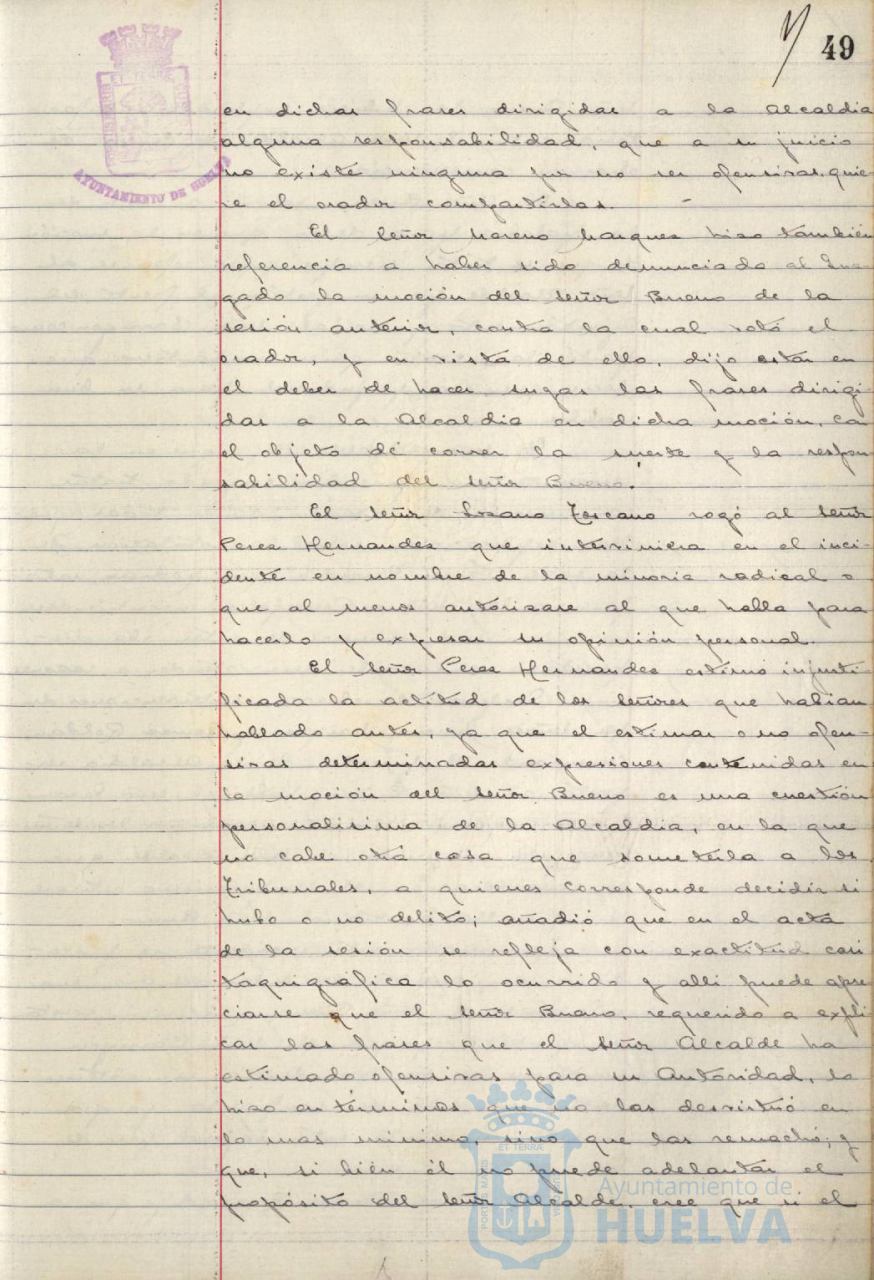 49
AYUNTAMIENTO DE HUELVA
en dichas frases dirigidas a la Alcaldia
alguna responsabilidad, que a su juicio
no existe ninguna por no ser ofensivas, quie-
re el orador compartirlas. -
El Señor Moreno Marquez hizo también
referencia a haber sido denunciado al Juz-
gado la moción del Señor Bueno de la
sesión anterior, contra la cual votó el
orador, y en vista de ello, dijo estar en
el deber de hacer suyas las frases dirigi-
das a la Alcaldia en dicha moción, con
el objeto de correr la suerte y la respon-
sabilidad del Señor Bueno.
El Señor Lozano Toscano rogó al Señor
Perez Hernandez que interviniera en el inci-
dente en nombre de la minoria radical o
que al menos autorizase al que habla para
hacerlo y expresar su opinión personal.
El Señor Perez Hernandez estimó injusti-
ficada la actitud de los Señores que habian
hablado antes, ya que el estimar o no ofen-
sivas determinadas expresiones contenidas en
la moción del Señor Bueno es una cuestión
personalisima de la Alcaldia, en la que
no cabe otra cosa que someterla a los
Tribunales, a quienes corresponde decidir si
hubo o no delito; añadió que en el acta
de la sesión se refleja con exactitud casi
taquigráfica lo ocurrido y alli puede apre-
ciarse que el Señor Bueno, requerido a expli-
car las frases que el Señor Alcalde ha
estimado ofensivas para su Autoridad, lo
hizo en términos que no las desvirtuó en
lo mas minimo, sino que las remachó; y
que, si bién él no puede adelantar el
propósito del Señor Alcalde, cree que si el
Ayuntamiento de
HUELVA